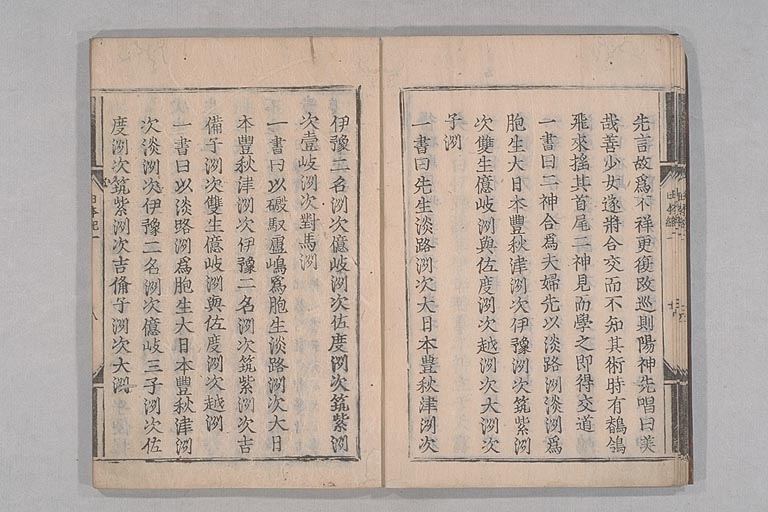 先言故爲不祥更復改巡則陽神先唱曰美
哉善少女遂將合交而不知其術時有鶺鴒
飛來搖其首尾二神見而學之即得交道
一書曰二神合爲夫婦先以淡路洲淡洲爲
胞生大日本豐秋津洲次伊豫洲次筑紫洲
次雙生億岐洲與佐度洲次越洲次大洲次
子洲
一書曰先生淡路洲次大日本豐秋津洲次
伊豫二名洲次億岐洲次佐度洲次筑紫洲
次壹岐洲次對馬洲
一書曰以磤馭盧嶋爲胞生淡路洲次大日
本豐秋津洲次伊豫二名洲次筑紫洲次吉
備子洲次雙生億岐洲與佐度洲次越洲
一書曰以淡路洲爲胞生大日本豐秋津洲
次淡洲次伊豫二名洲次億岐三子洲次佐
度洲次筑紫洲次吉備子洲次大洲